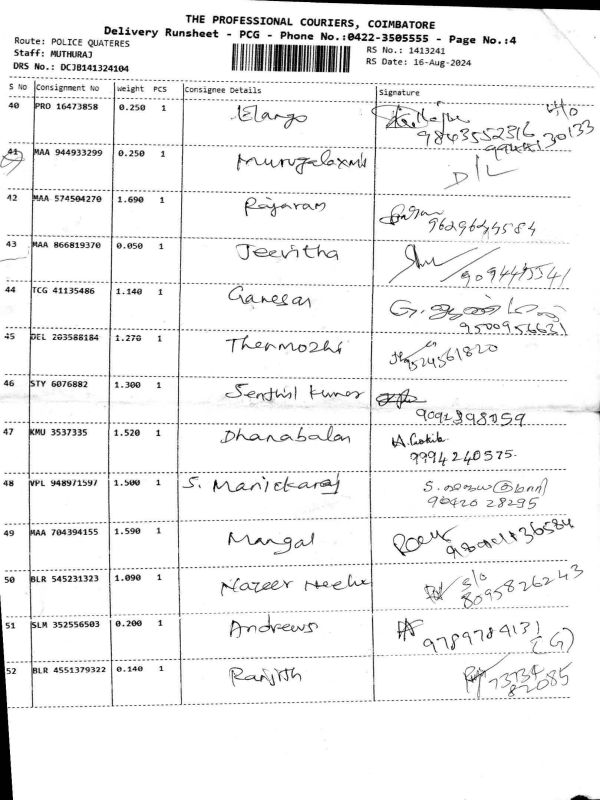 THE PROFESSIONAL COURIERS, COIMBATORE
Delivery Runsheet - PCG - Phone No.:0422-3505555 - Page No.:4
Route: POLICE QUATERES
RS No.: 1413241
Staff: MUTHURAJ
RS Date: 16-Aug-2024
DRS No.: DCJB141324104
S No Consignment No Weight PCS Consignee Details Signature
40 PRO 16473858 0.250 1 Elango
9843552316
41 MAA 944933299 0.250 1 Murugalaxmi D/L
42 MAA 574504270 1.690 1 Rajaram
9629644584
43 MAA 866819370 0.050 1 Jeevitha
44 TCG 41135486 1.140 1 Ganesan
9500956631
45 DEL 203588184 1.270 1 Thenmozhi
9524561820
46 STY 6076882 1.300 1 Senthil Kumar
9092398059
47 KMU 3537335 1.520 1 Dhanabalan
9994240575.
48 VPL 948971597 1.500 1 S. Manickaraj
90420 28295
49 MAA 704394155 1.590 1 Mangal
50 BLR 545231323 1.090 1 S/o
8095826243
51 SLM 352556503 0.200 1 Andrews
9789784131
(G)
52 BLR 4551379322 0.140 1 Ranjith
73734
82085